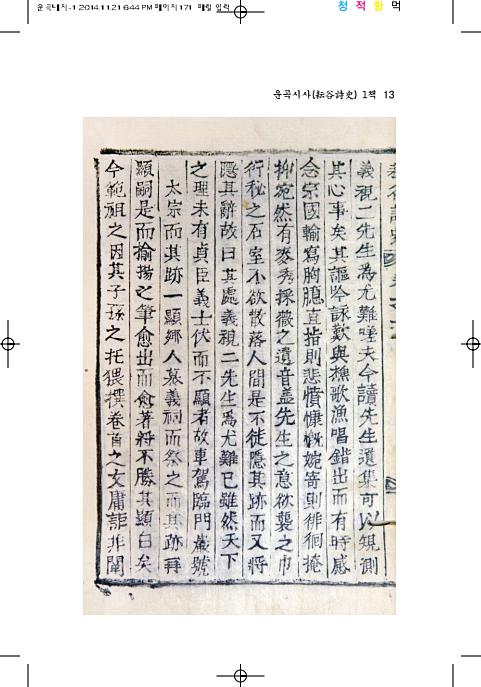 운곡내지-1 2014.11.21 6:44 PM 페이지171 매립 일력
청 적 황 먹
운곡시사(耘谷詩史) 1책 13
義視二先生爲尤難嗟夫今讀先生遺集可以規測
其心事矣其謳吟詠歎與樵歌漁唱錯出而有時感
念宗國輸寫胸臆直指則悲憤慷慨婉寄則徘徊掩
抑宛然有麥秀採薇之遺音盖先生之意欲襲之巾
衍秘之石室不欲散落人間是不徒隱其跡而又將
隱其辭故曰其處義視二先生爲尤難已雖然天下
之理未有貞臣義士伏而不顯者故車駕臨門
太宗而其跡一顯鄕人慕義祠而祭之而其跡再
顯嗣是而揄揚之筆愈出而愈著將不勝其顯白矣
今範祖之因其子孫之托猥撰卷首之文庸詎非闡